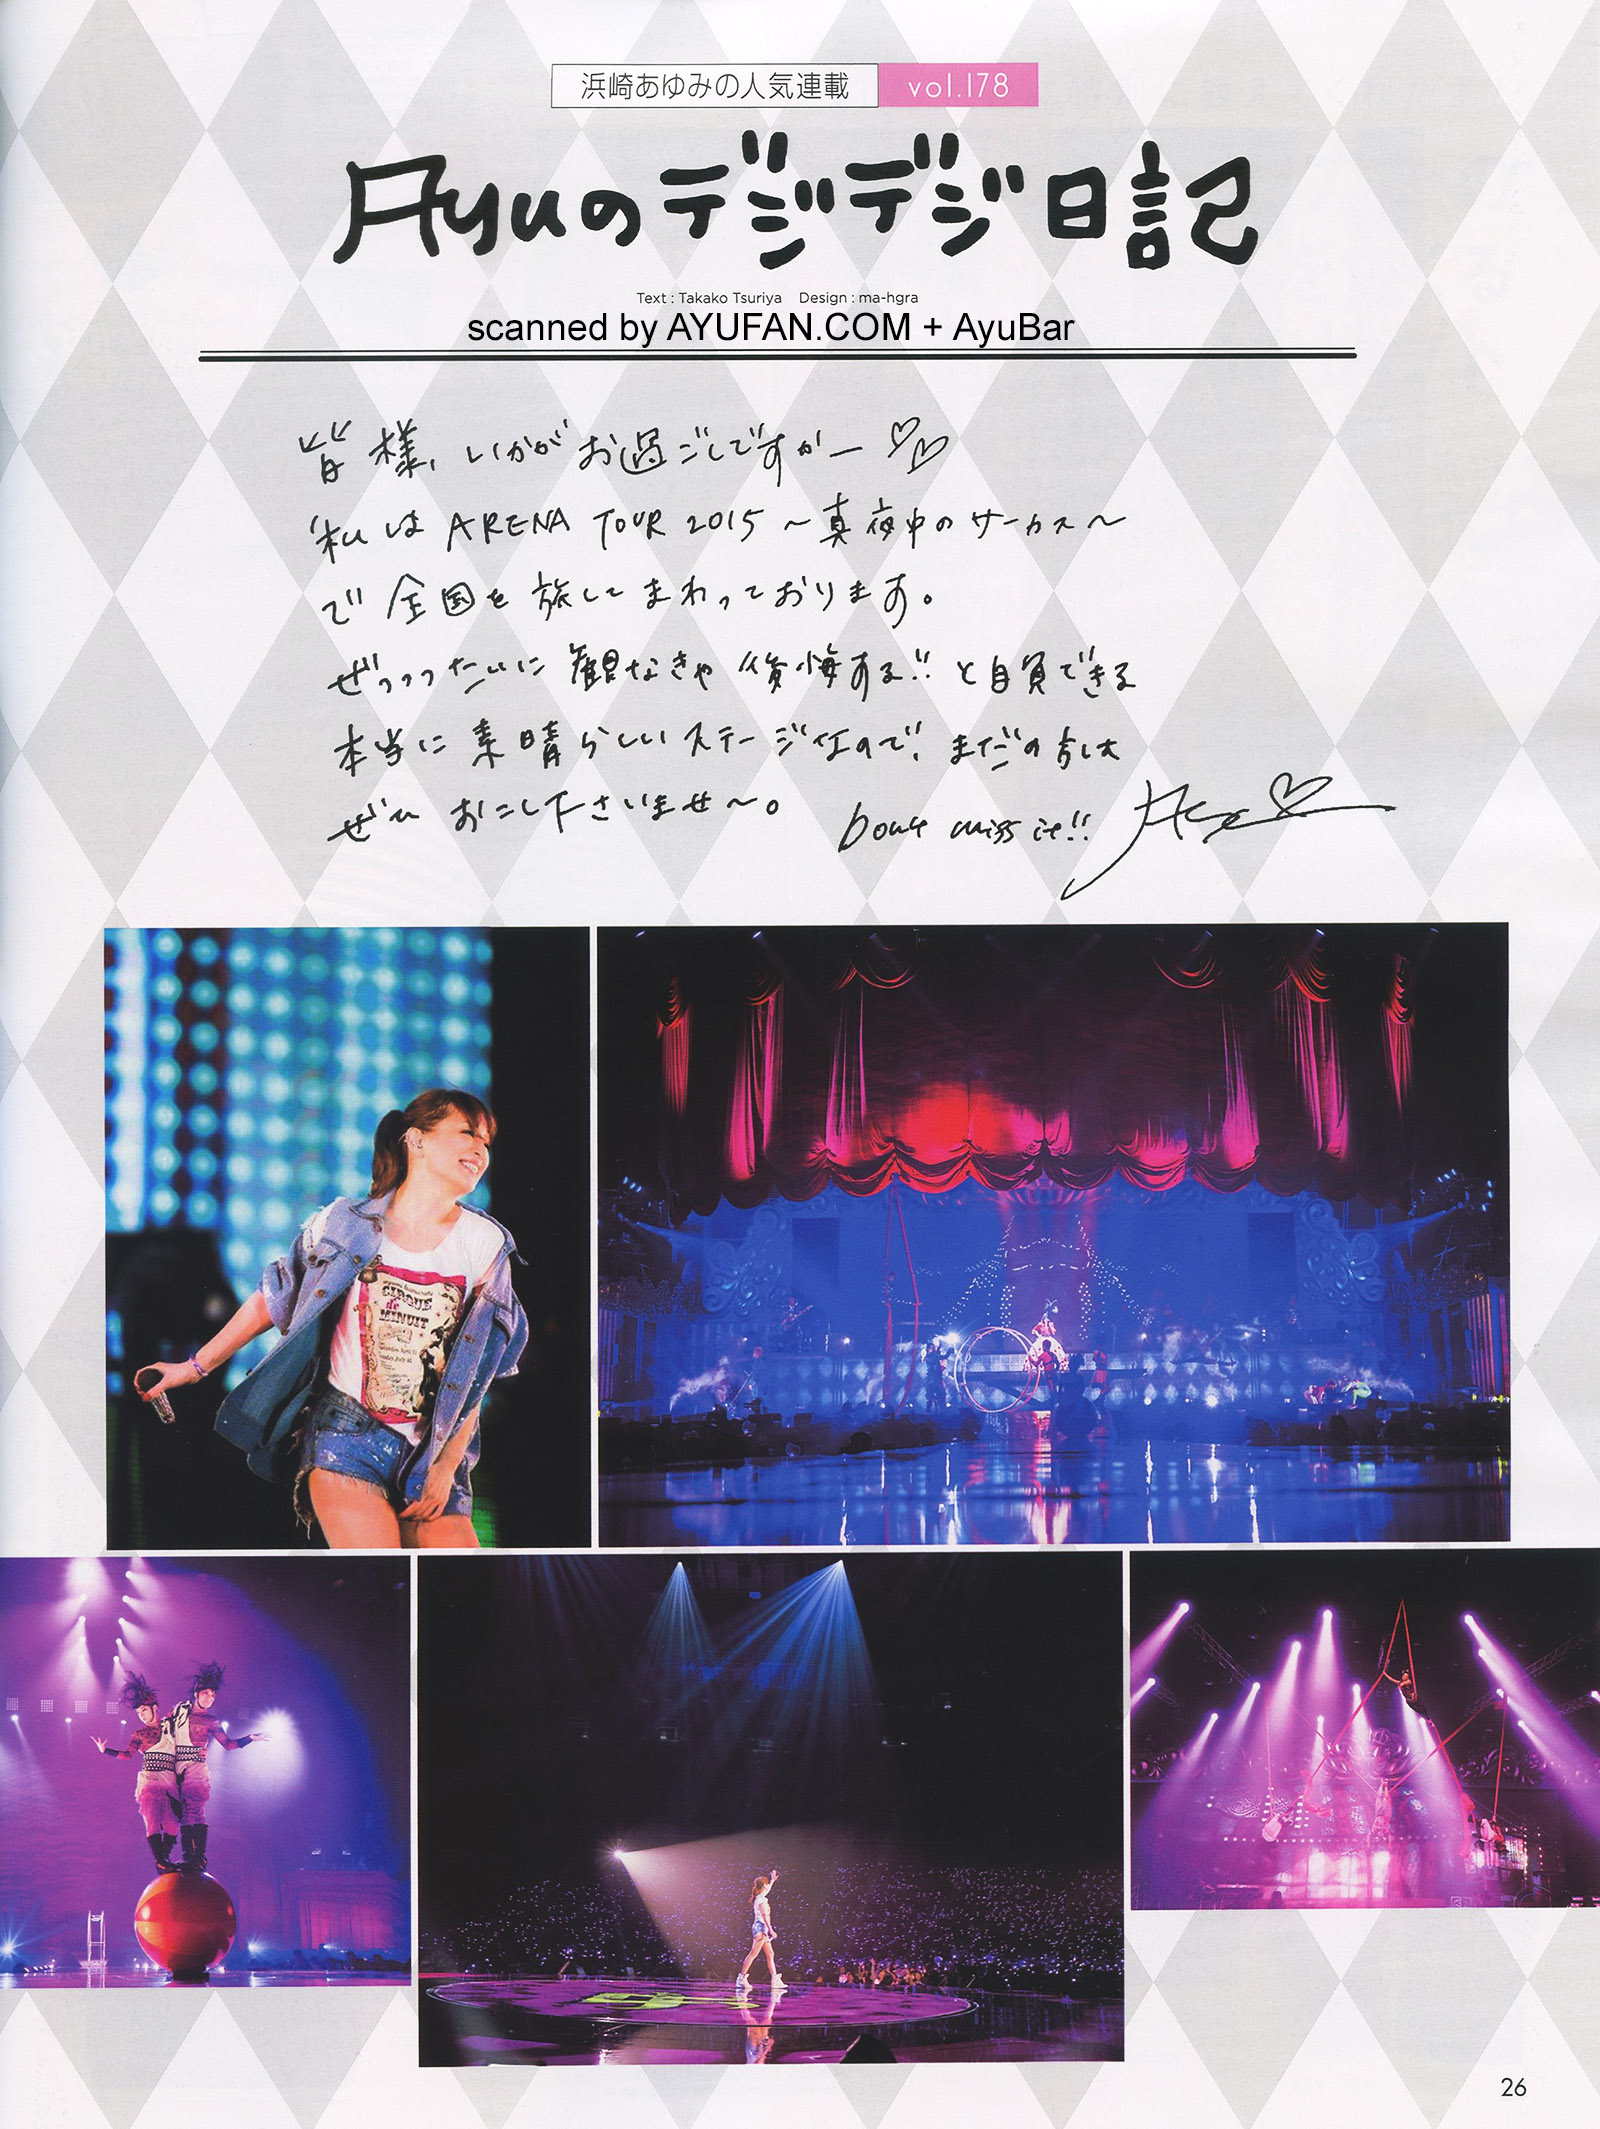 浜崎あゆみの人気連載 vol.178
Ayuのデジデジ日記
Text : Takako Tsuriya Design : ma-hgra
scanned by AYUFAN.COM + AyuBar
皆様、いかがお過ごしですかー♡♡
私は ARENA TOUR 2015 〜真夜中のサーカス〜
で全国を旅してまわっております。
ぜっっったいに観なきゃ後悔する!! と自負できる
本当に素晴らしいステージなので、まだの方も
ぜひおこし下さいませ〜。 Don't miss it!!
CIRQUE
de
MINUIT
26